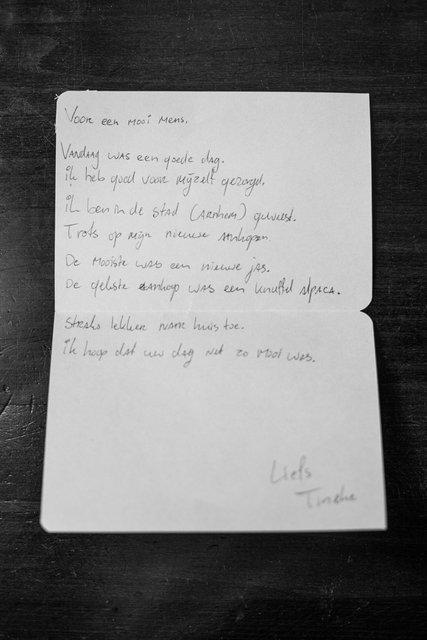 Voor een mooi mens.
Vandaag was een goede dag.
ik heb goed voor mijzelf gezorgd.
ik ben in de stad (Arnhem) geweest.
Trots op mijn nieuwe aankopen.
De mooiste was een nieuwe jas.
De gekste aankoop was een knuffel alpaca.
Straks lekker naar huis toe.
ik hoop dat uw dag net zo mooi was.
Liefs
Tineke